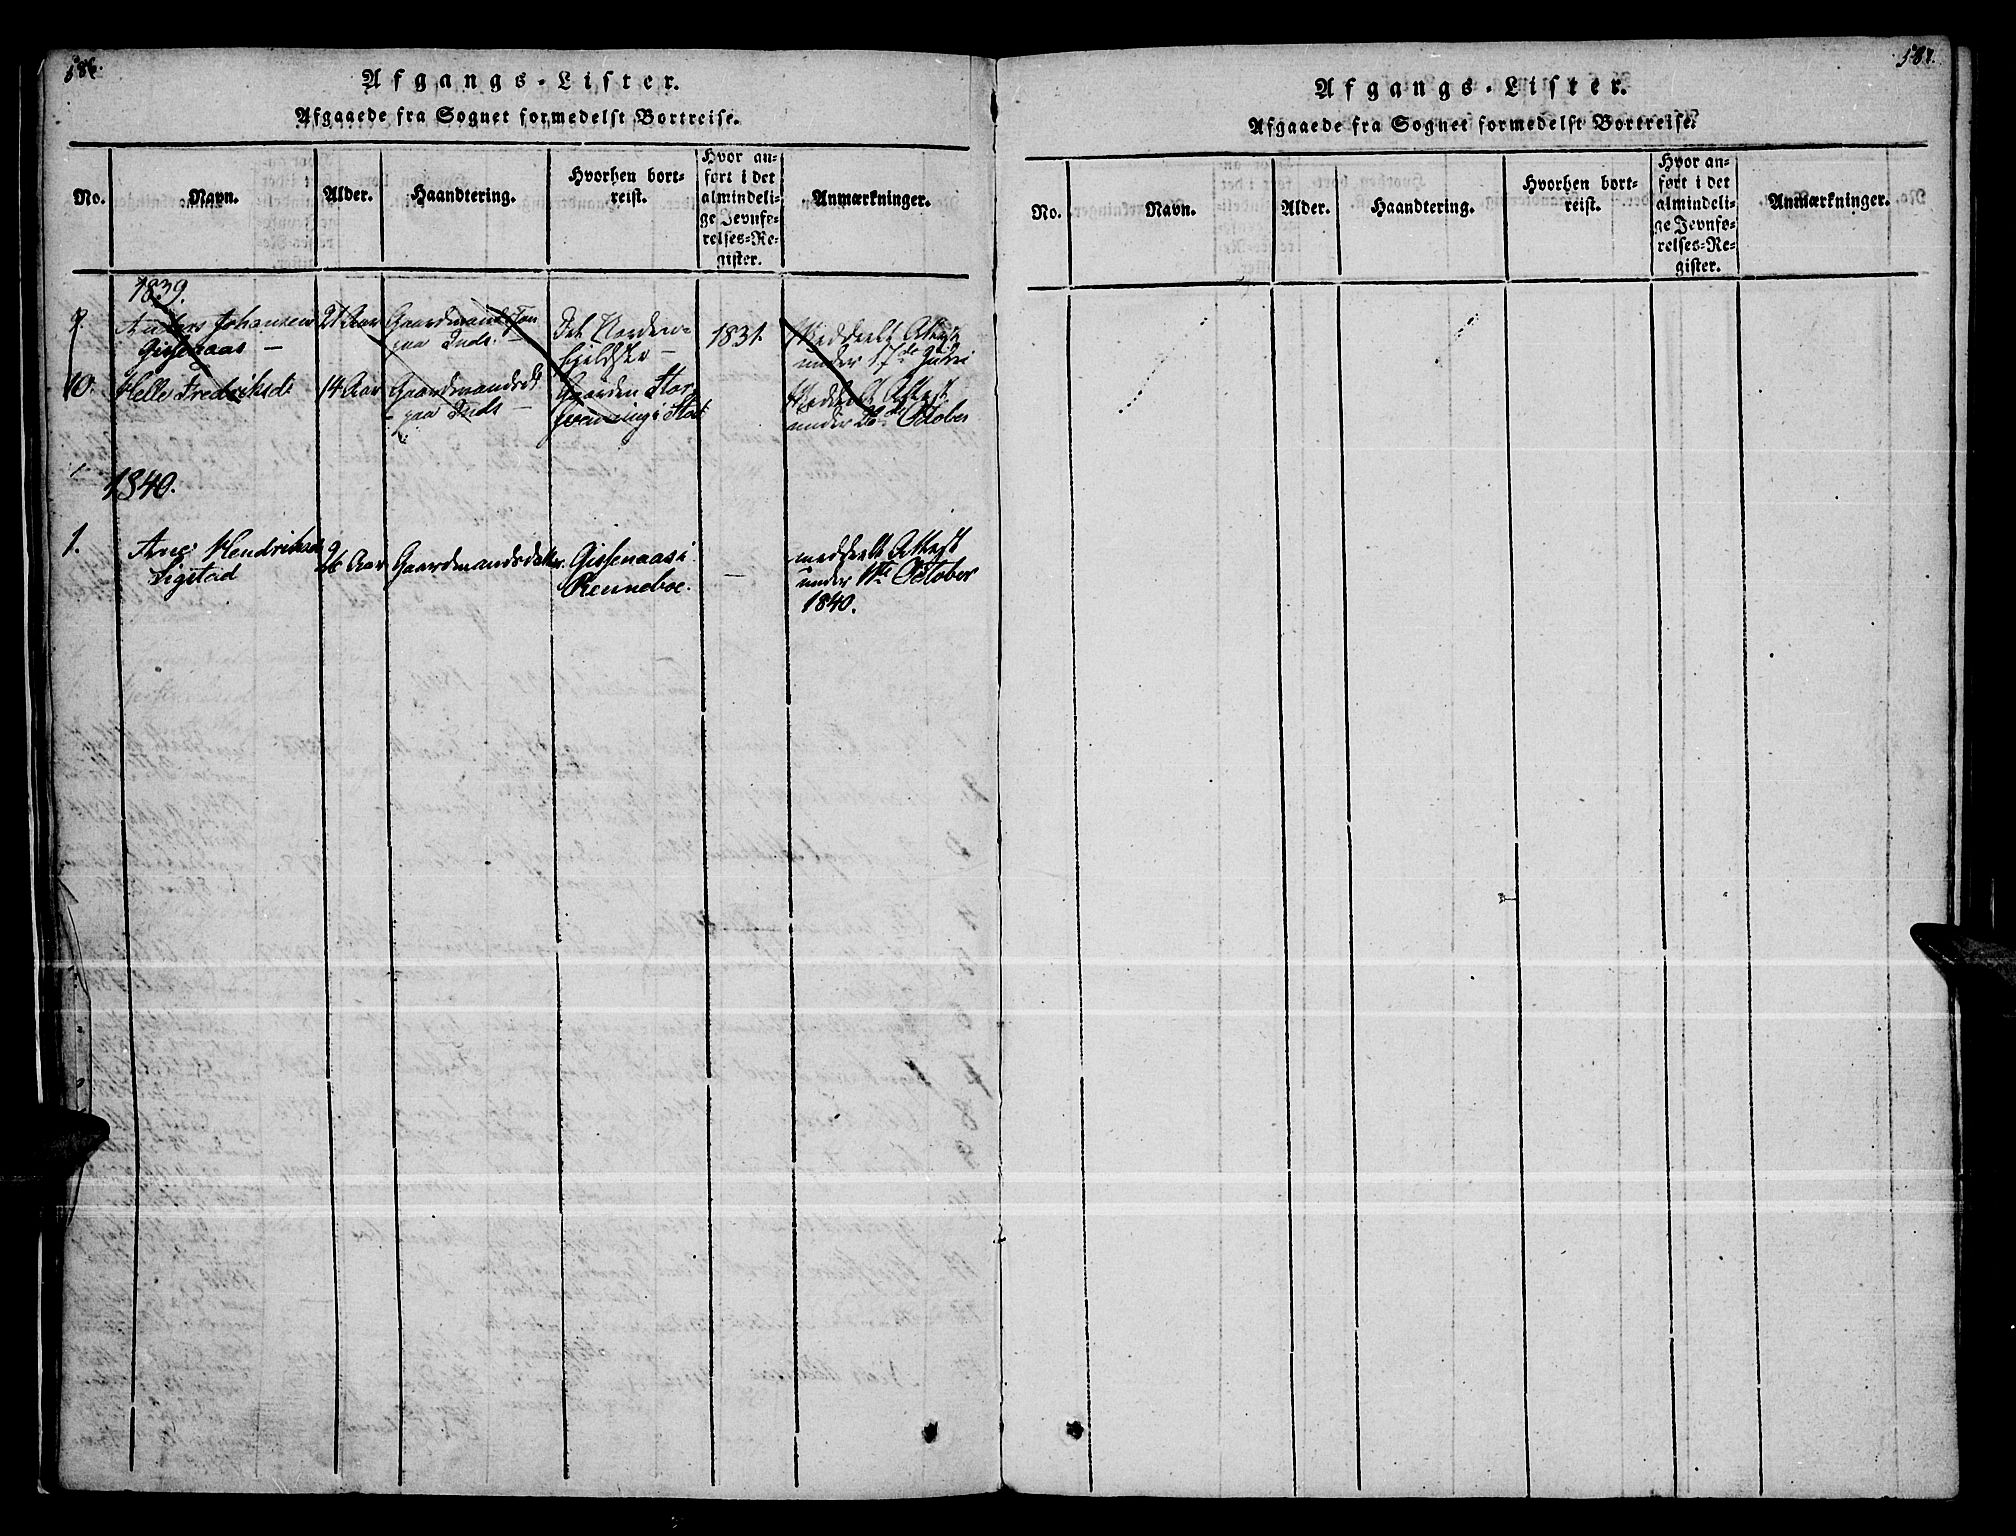 586.
Afgangs-Lister.
Afgaaede fra Sognet formedelst Bortreise.
No.
Navn.
Alder.
Haandtering.
Hvorhen bort-
reist.
Hvor an-
ført i det
almindeli-
ge Jevnfø-
relses-Re-
gister.
Anmærkninger.
1839.
9.
Anders Johansen
Gisenaas —
21 Aar
Gaardmandssøn
paa Inds. —
Det Norden-
fjeldske —
1831.
Meddeelt Attest
under 17de Juni
10.
Helle Fredriksdt
14 Aar
Gaardmandsdt
paa Inds —
Gaarden Stor
i
Meddeelt Attest
under 20de October
1840.
1.
Ane Hendriksdt
Ligstad
26 Aar
Gaardmandsdatter.
Gisenaas i
Renneboe.
—
meddeelt Attest
under 11te October
1840.
587.
Afgangs-Lister.
Afgaaede fra Sognet formedelst Bortreise.
No.
Navn.
Alder.
Haandtering.
Hvorhen bort-
reist.
Hvor an-
ført i det
almindeli-
ge Jevnfø-
relses-Re-
gister.
Anmærkninger.